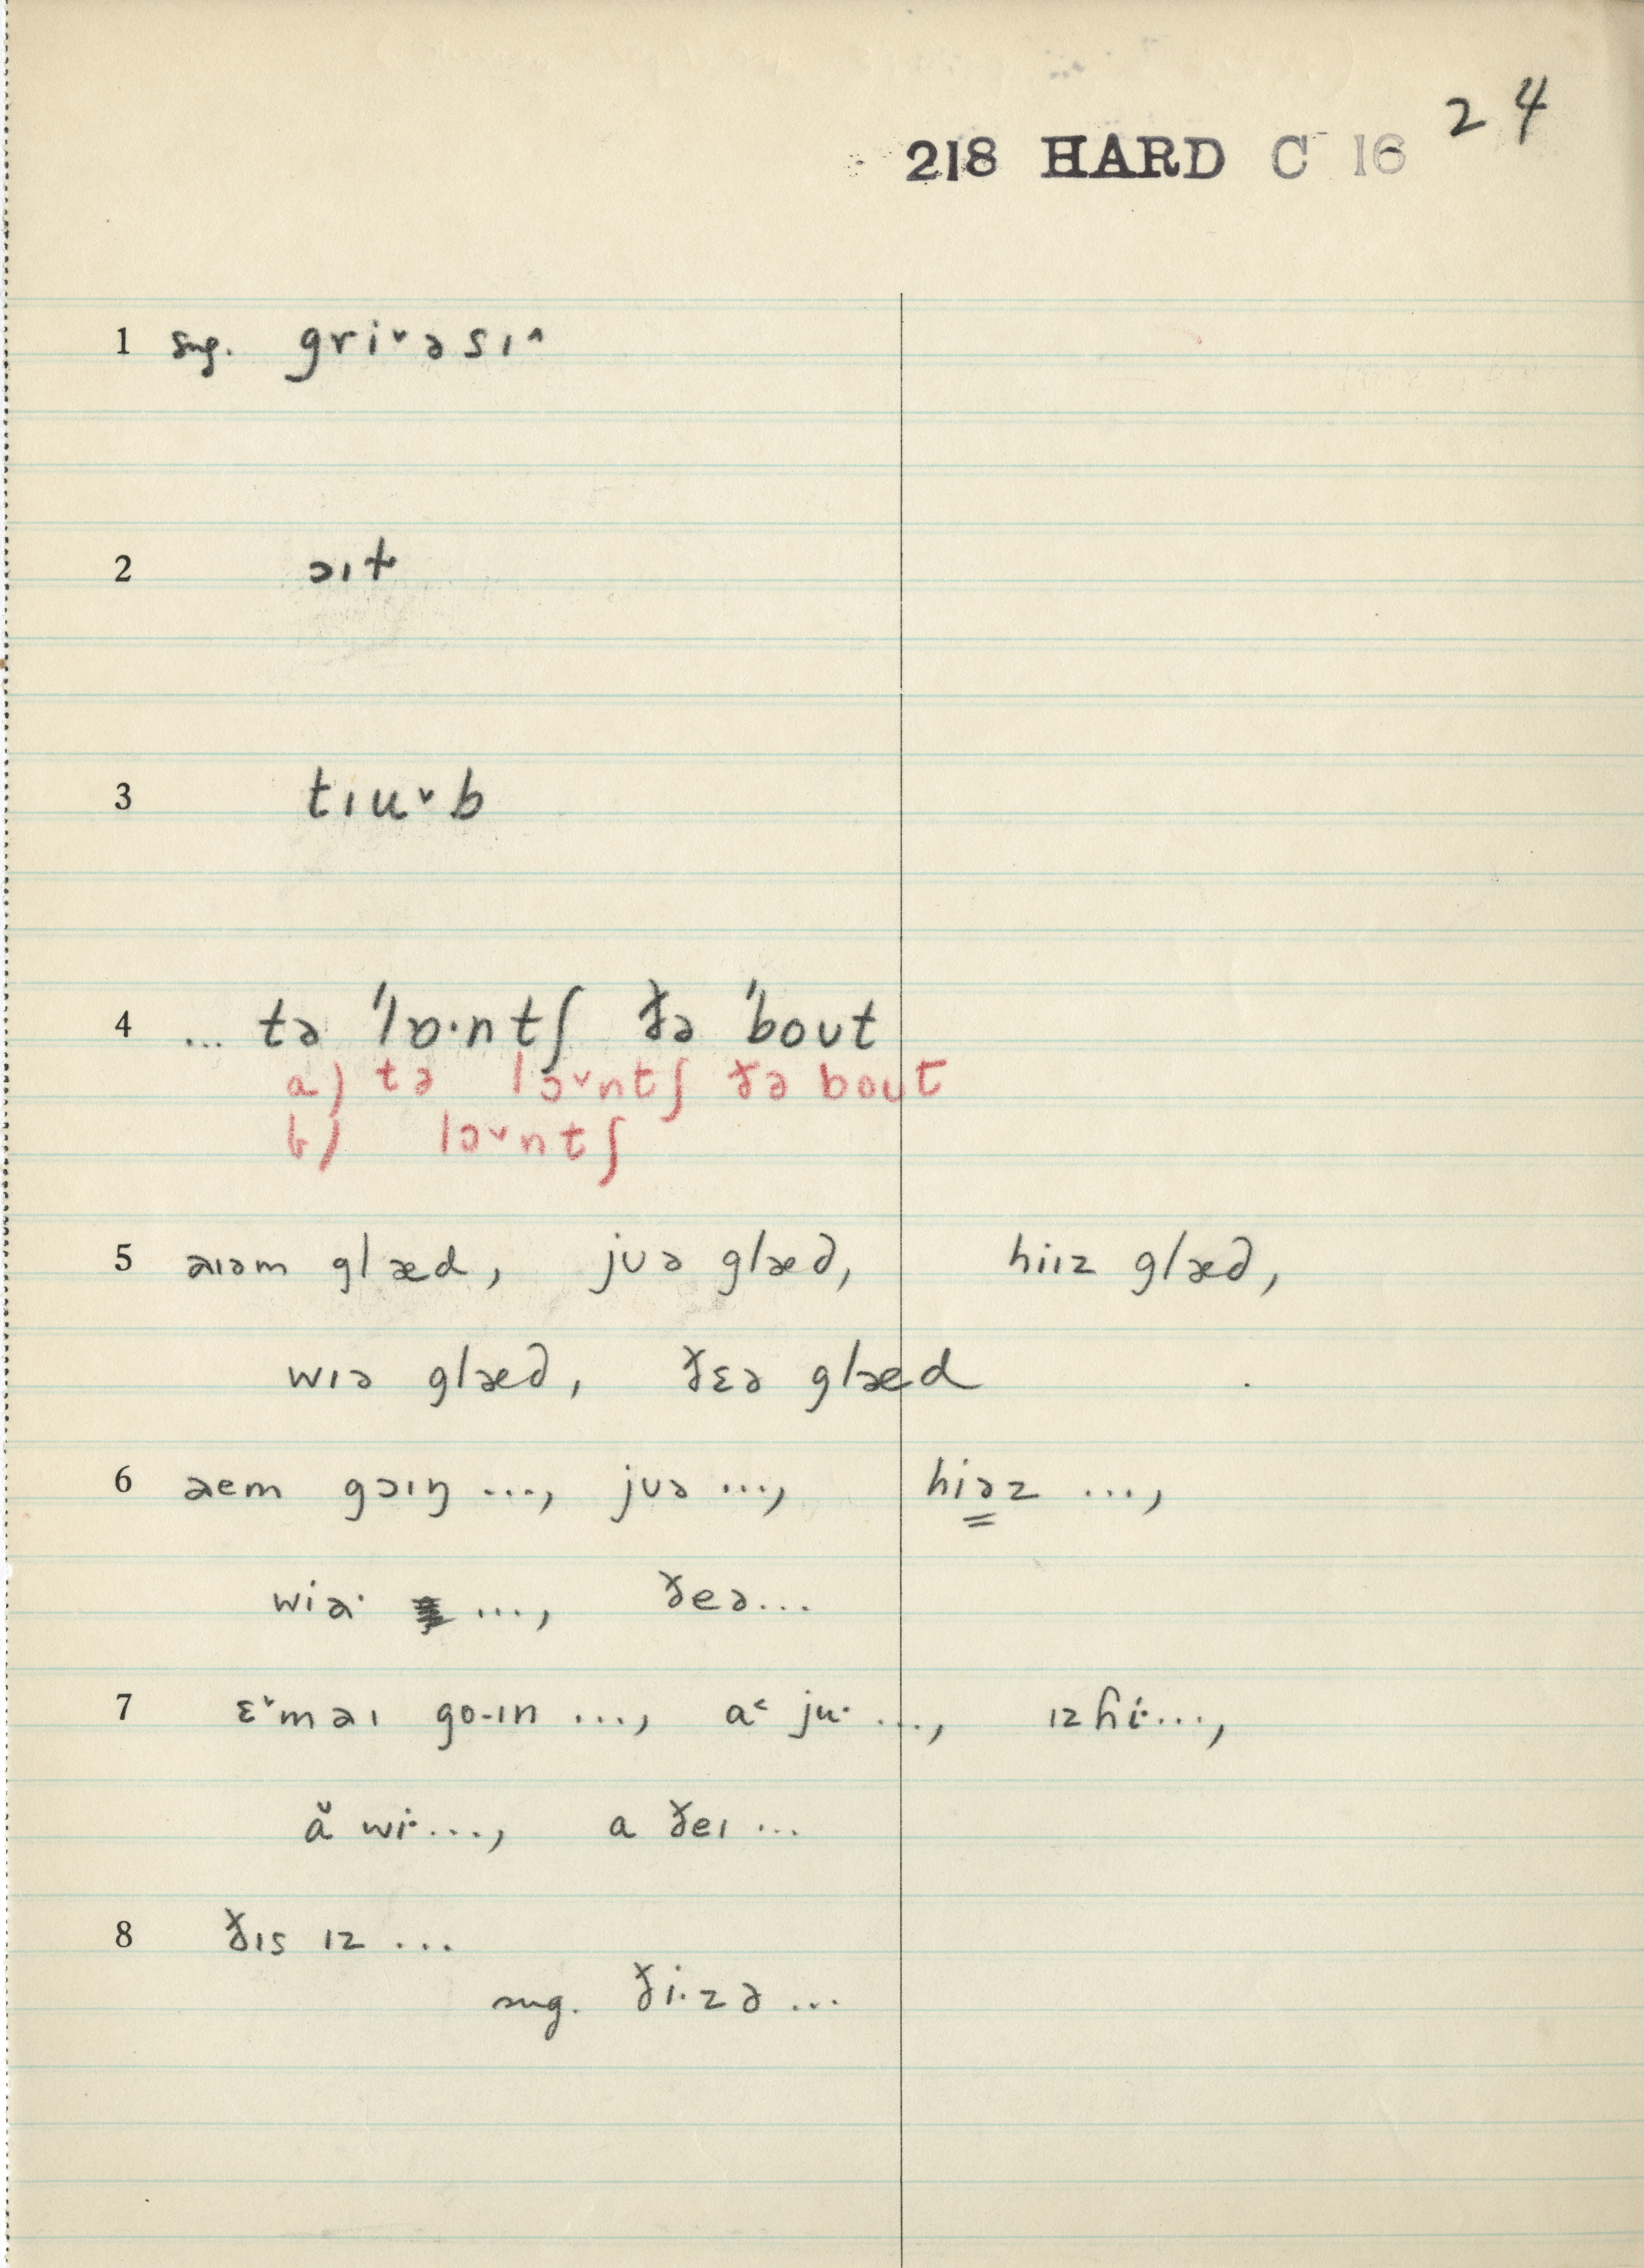 24
218 HARD C 16
1 sug. gri˅əsɪ˄
2 ɔɪt
3 tɪu˅b
4 ... tə 'lɒ·ntʃ ðə 'bout
a) tə lɔ˅ntʃ ðə bout
b) lɔ˅ntʃ
5 aɪəm glæd, jʊə glæd, hiɪz glæd,
wɪə glæd, ðɛə glæd
6 aem gɔɪŋ ..., jʊə ..., hiəz ...,
wiə· ..., ðeə...
7 ɛ˅maɪ go·ɪn ..., a˂ ju· ..., ɪzɦi·...,
ă wi·..., a ðeɪ ...
8 ðɪs ɪz ...
sug. ði·zə ...